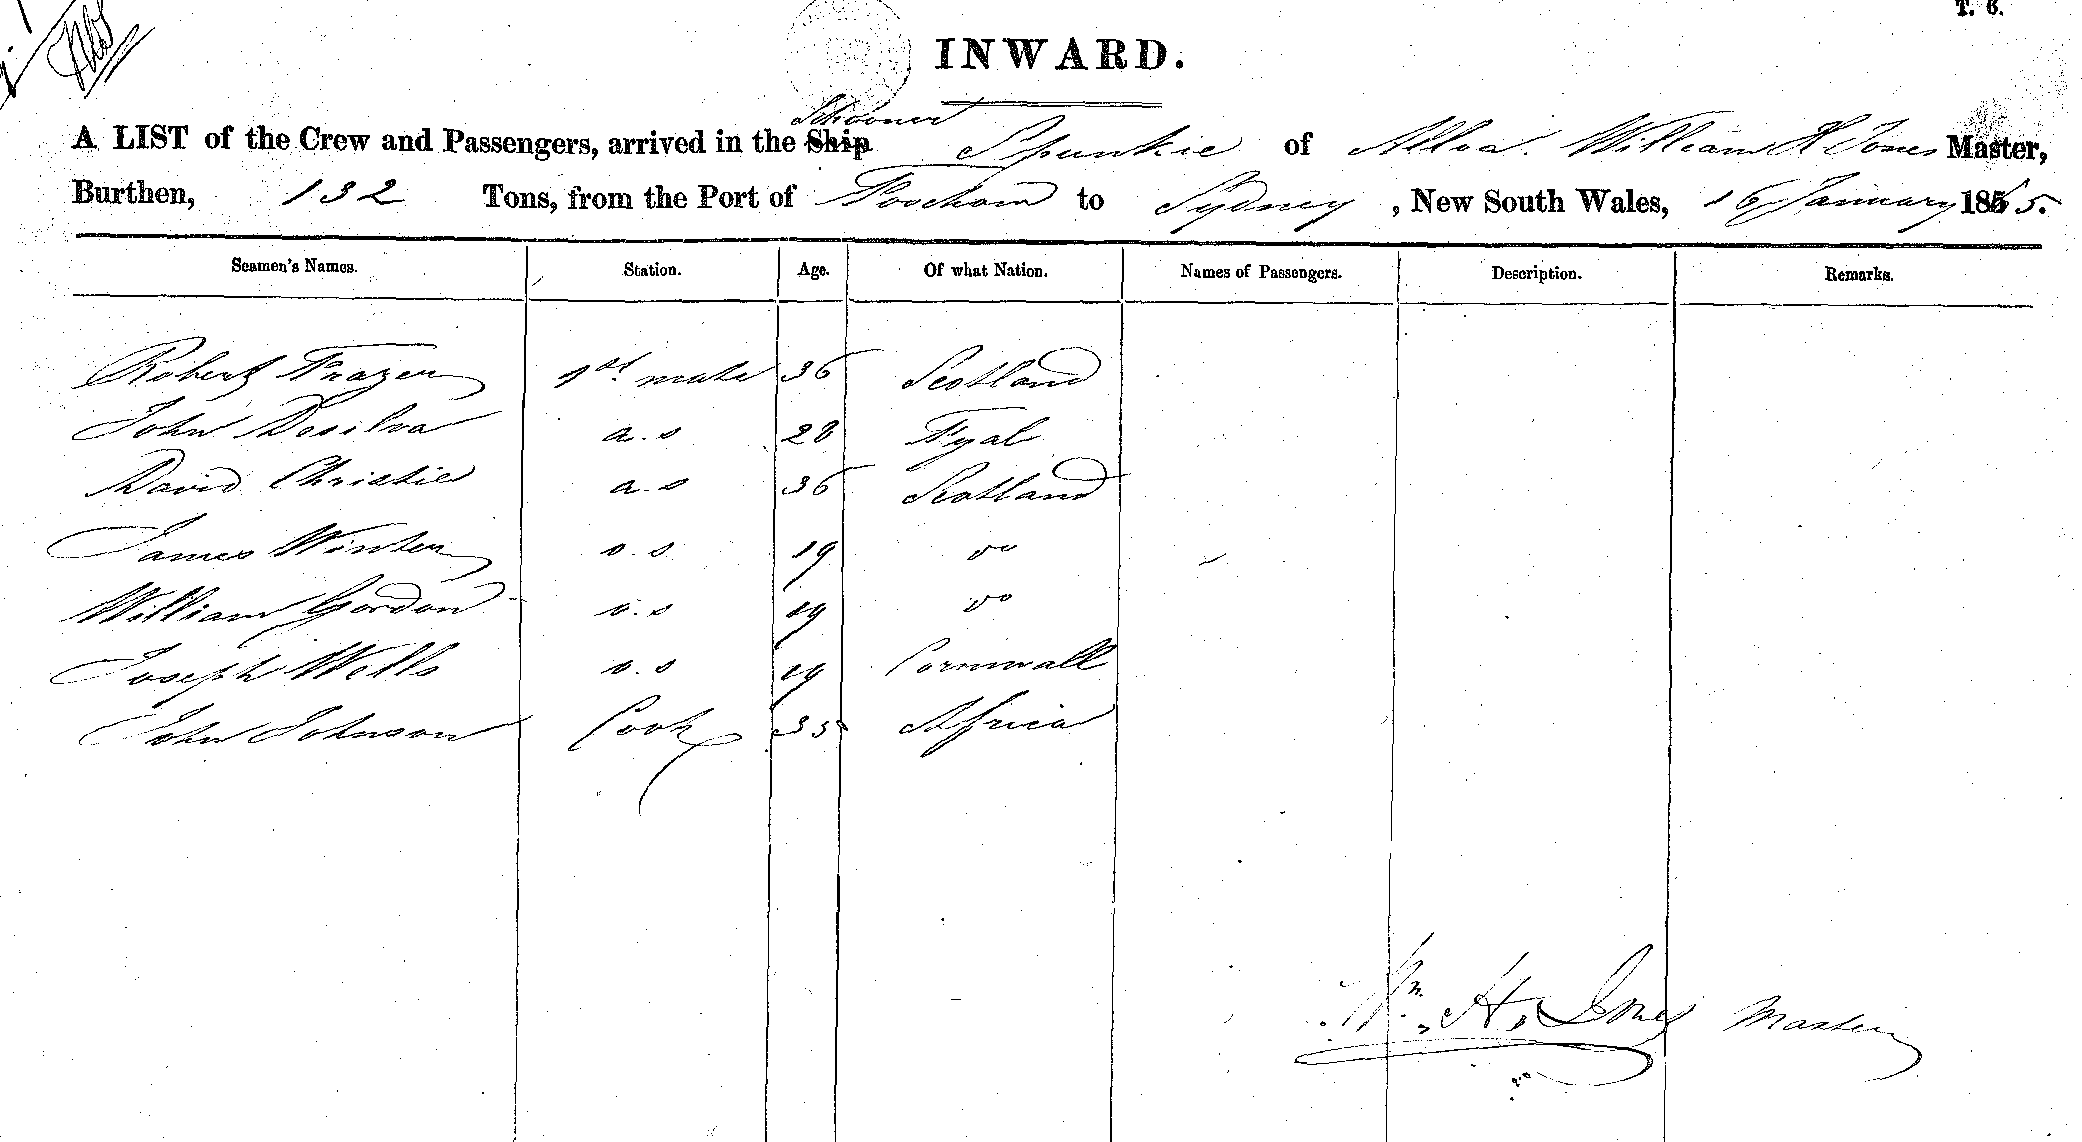 T. 6.
INWARD.
Schooner
A LIST of the Crew and Passengers, arrived in the Ship Spunkie of Alloa. William H Jones Master,
Burthen, 132 Tons, from the Port of Foochow to Sydney, New South Wales, 16 January 1865.
Seamen's Names. Station. Age. Of what Nation. Names of Passengers. Description. Remarks.
Robert Frazer 1st mate 36 Scotland
John Desilva a.s 28 Fyal
David Christie a.s 36 Scotland
James Winter o.s 19 Do
William Gordon o.s 19 Do
Joseph Wells o.s 19 Cornwall
John Johnson Cook 35 Africa
Wm. H. Jones Master